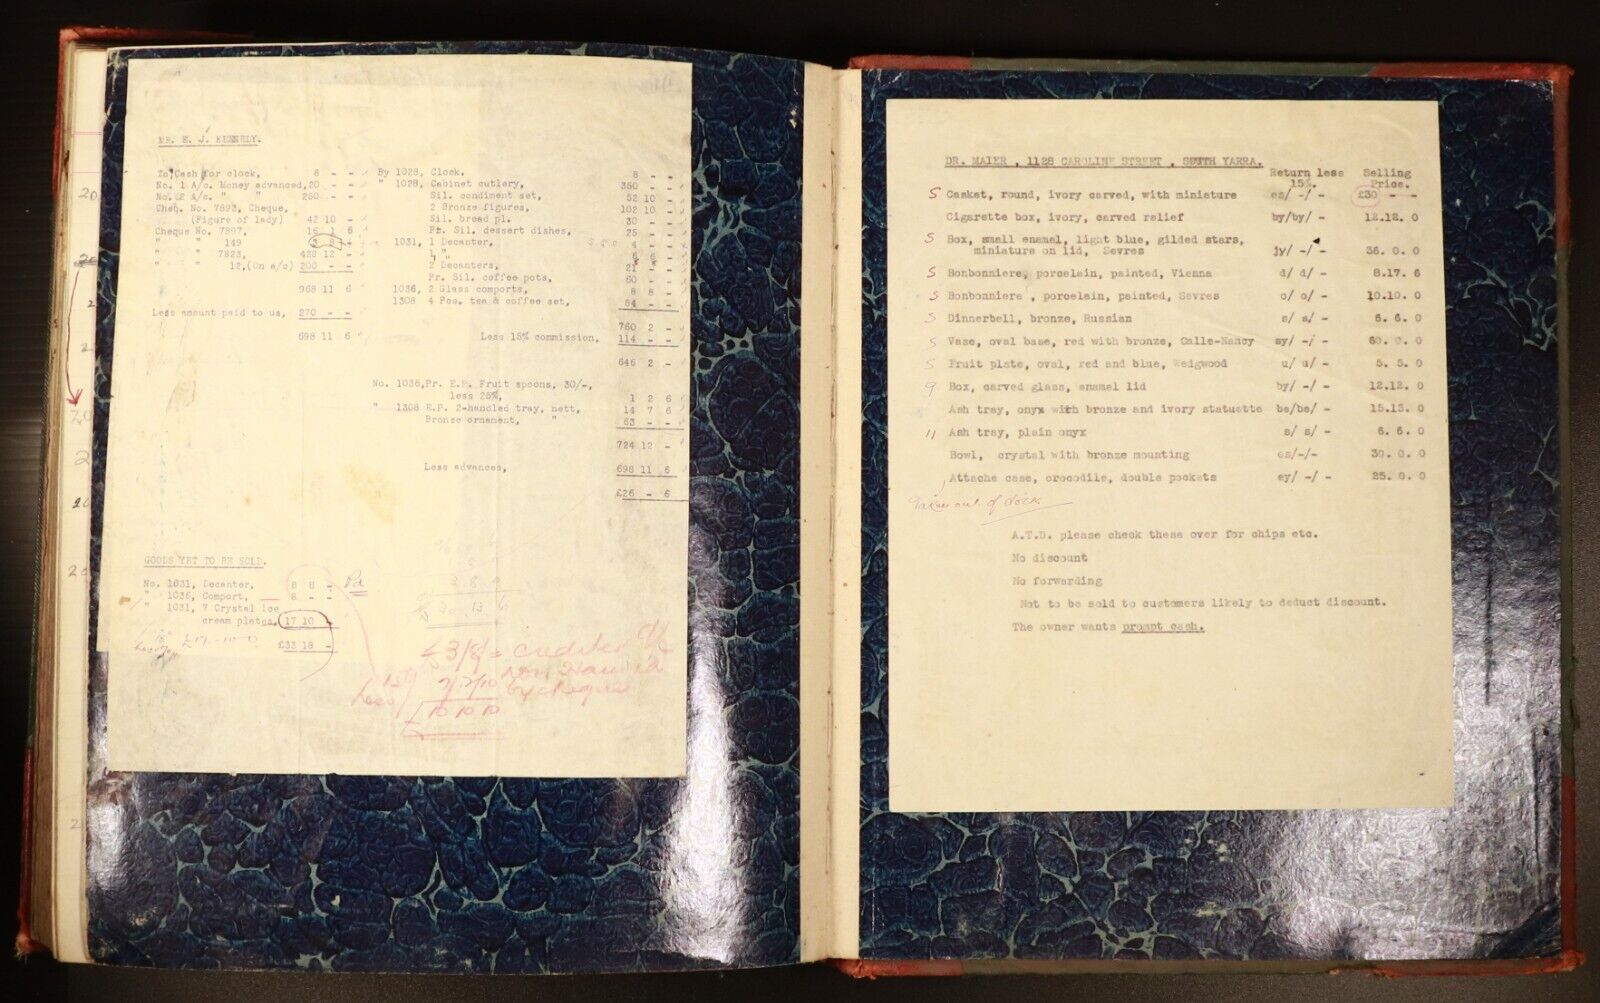 MR. E. J. KENNEDY.
To Cash for clock, 8 - -
No. 1 A/c. Money advanced, 20 - -
No. 2 A/c. " " 250 - -
Cheq. No. 7893, Cheque,
(Figure of lady) 42 10 -
Cheque No. 7897, 16 1 6
" " 149 3 8 -
" " 7823, 428 12 -
" " 12, (On a/c) 200 - -
968 11 6
Less amount paid to us, 270 - -
698 11 6
By 1028, Clock. 8 - -
" 1028, Cabinet cutlery, 350 - -
Sil. condiment set, 52 10 -
2 Bronze figures, 102 10 -
Sil. bread pl. 30 - -
Pr. Sil. dessert dishes, 25 - -
1031, 1 Decanter, 4 - -
2 Decanters, 21 - -
Pr. Sil. coffee pots, 60 - -
1036, 2 Glass comports, 8 8 -
1308 4 Pce. tea & coffee set, 84 - -
760 2 -
Less 15% commission, 114 - -
646 2 -
No. 1036, Pr. E.P. Fruit spoons, 30/-,
less 25%, 1 2 6
" 1308 E.P. 2-handled tray, nett, 14 7 6
Bronze ornament, " 63 - -
724 12 -
Less advances, 698 11 6
£26 - 6
GOODS YET TO BE SOLD.
No. 1031, Decanter, 8 8 - Pd
" 1036, Comport, 8 - -
" 1031, 7 Crystal ice
cream plates, 17 10 -
£33 18 -
£3/8/= credited
by cheque
Less
10 10 10
DR. MAIER , 1128 CAROLINE STREET , SOUTH YARRA.
Return less 15%. Selling Price.
S Casket, round, ivory carved, with miniature es/ -/ - £30 - -
Cigarette box, ivory, carved relief by/by/ - 12.12. 0
S Box, small enamel, light blue, gilded stars,
miniature on lid, Sevres jy/ -/ - 36. 0. 0
S Bonbonniere, porcelain, painted, Vienna d/ d/ - 8.17. 6
S Bonbonniere , porcelain, painted, Sevres o/ o/ - 10.10. 0
S Dinnerbell, bronze, Russian s/ s/ - 6. 6. 0
S Vase, oval base, red with bronze, Galle-Nancy sy/ -/ - 60. 0. 0
S Fruit plate, oval, red and blue, Wedgwood u/ u/ - 5. 5. 0
9 Box, carved glass, enamel lid by/ -/ - 12.12. 0
Ash tray, onyx with bronze and ivory statuette be/be/ - 15.15. 0
11 Ash tray, plain onyx s/ s/ - 6. 6. 0
Bowl, crystal with bronze mounting es/-/- 30. 0. 0
Attache case, crocodile, double pockets ey/ -/ - 25. 0. 0
Taken out of stock
A.T.D. please check these over for chips etc.
No discount
No forwarding
Not to be sold to customers likely to deduct discount.
The owner wants prompt cash.